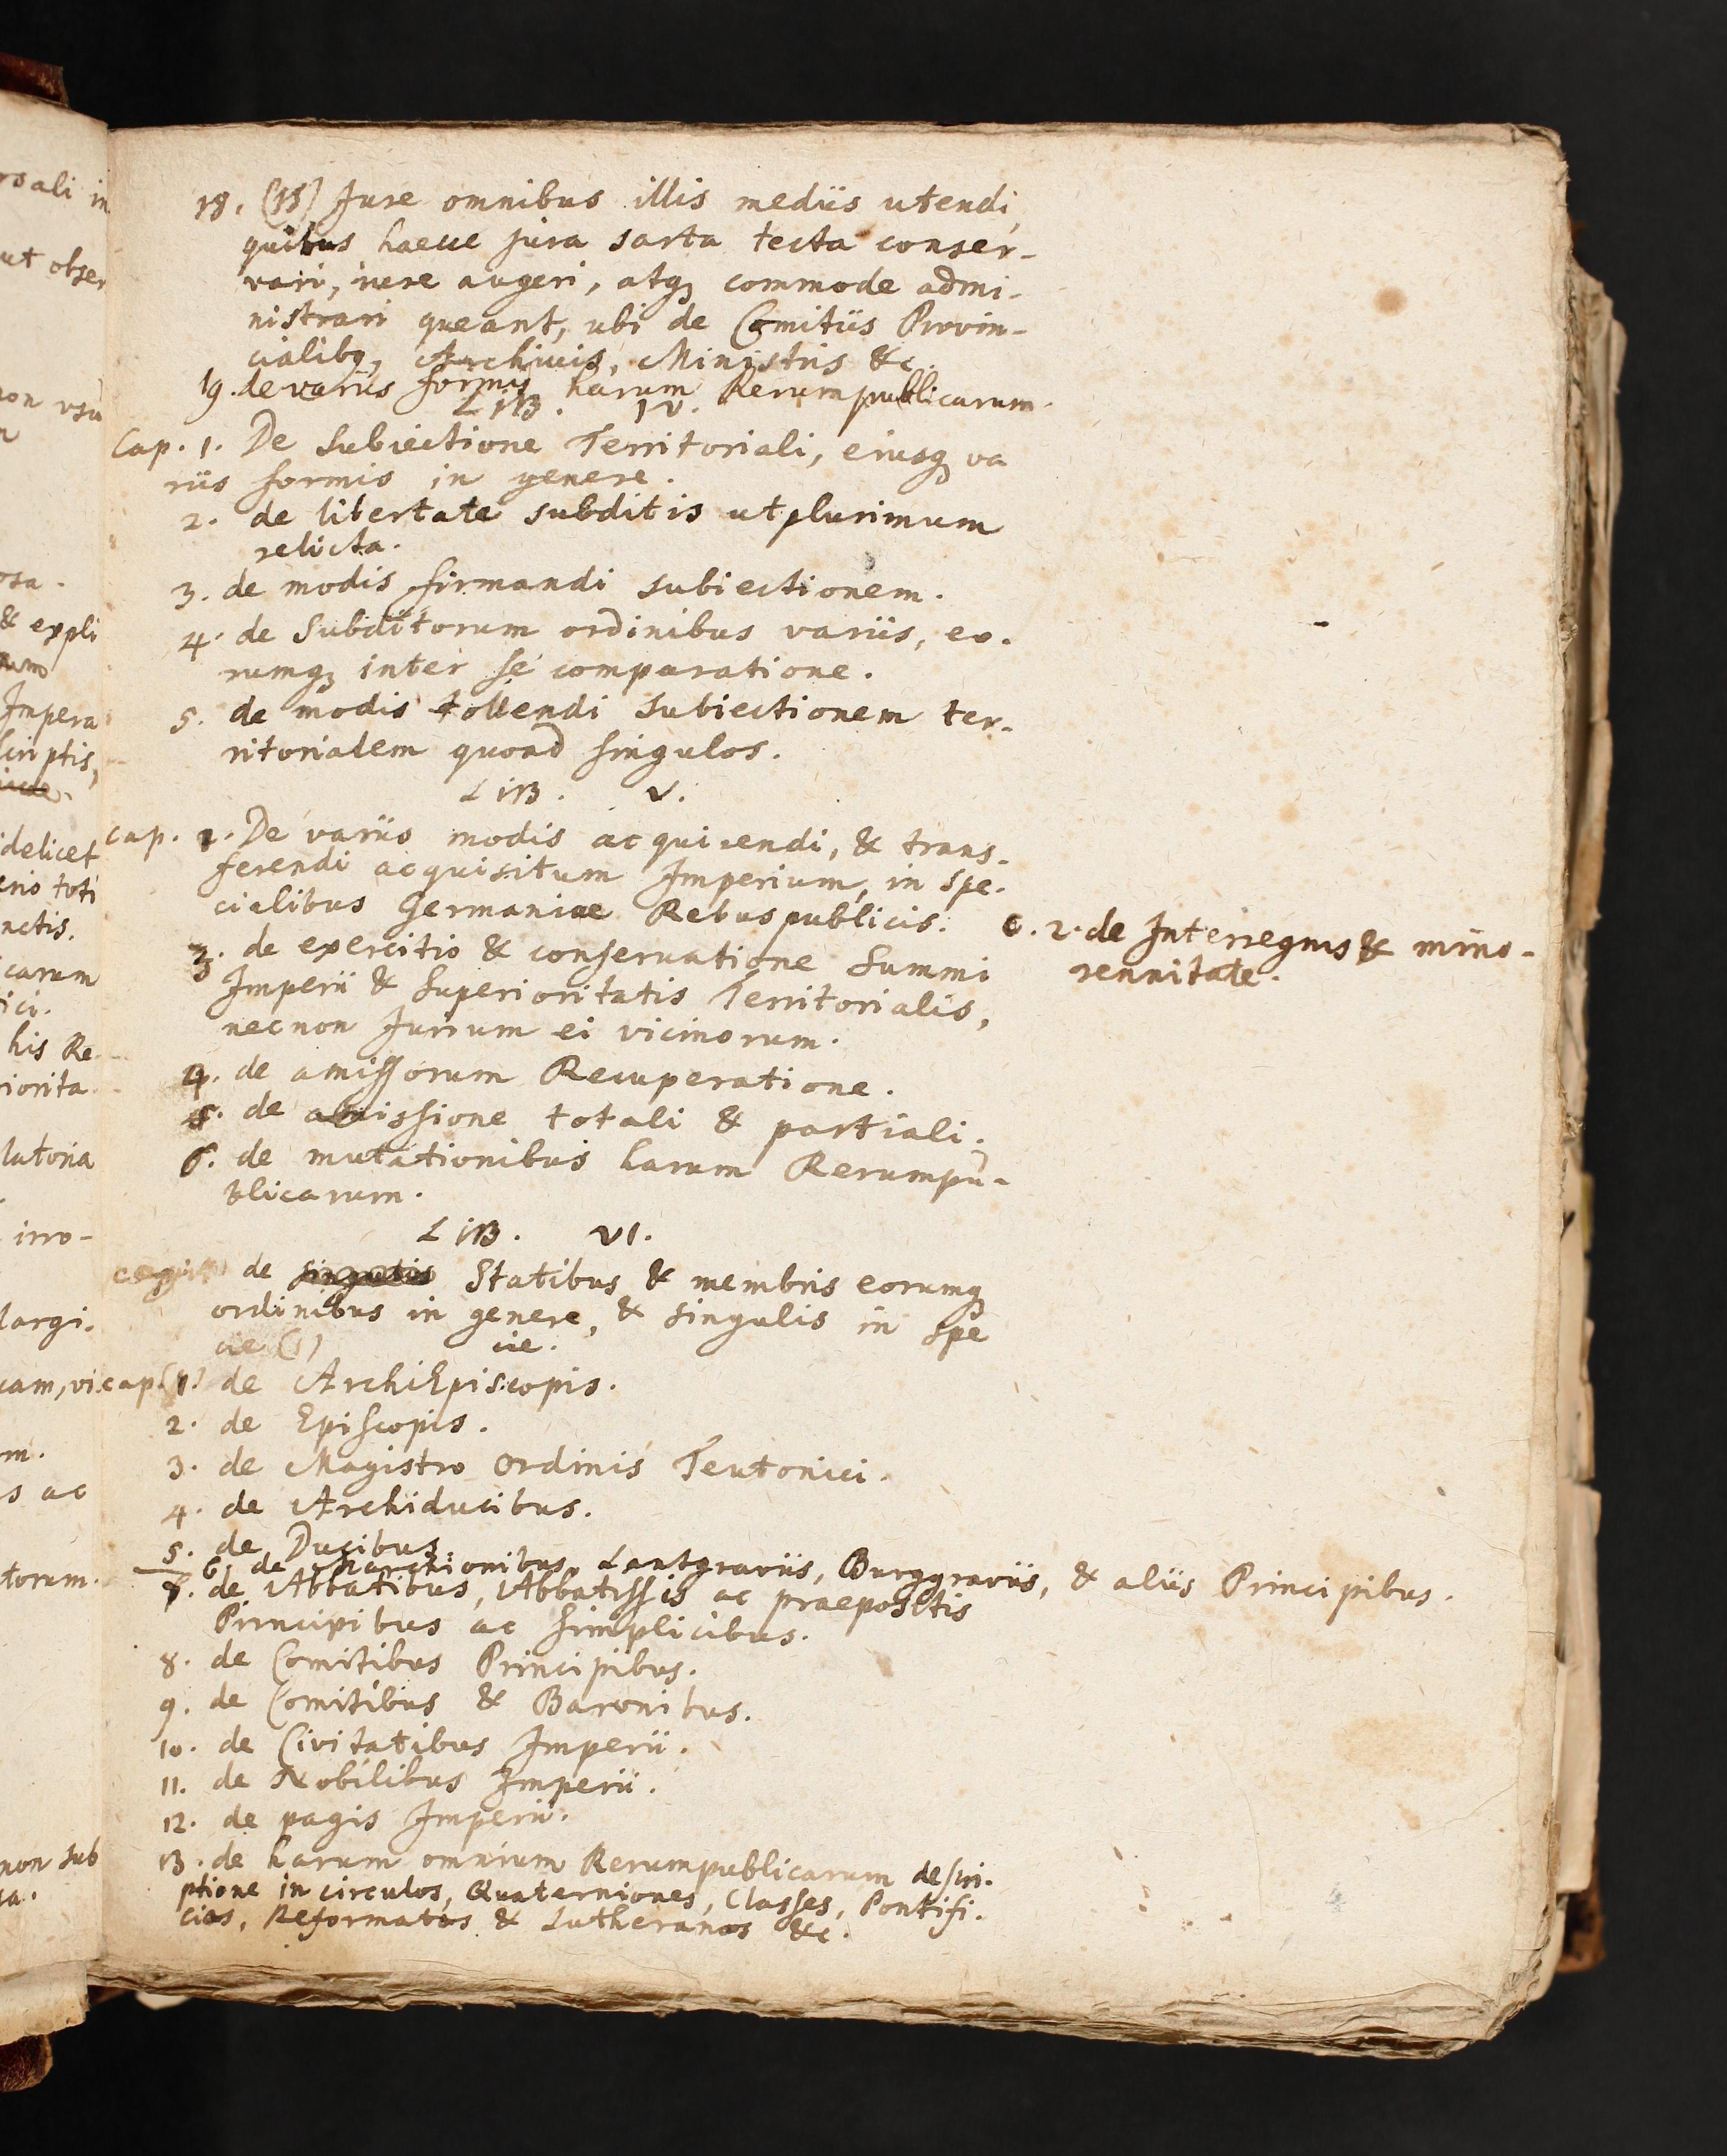 18. (18) Jure omnibus illis mediis utendi
quibus haece jura sarta tecta conser-
vari, augeri, atq; commode admi-
nistrari queant, ubi de Comitiis Provin-
cialibq, Archivis, Ministris &c.
19. de variis formis harum Rerumpublicarum.
LIB. IV.
Cap. 1. De Subiectione Territoriali, eiusq; va
riis formis in genere.
2. de libertate subditis utplurimum
relicta.
3. de modis firmandi subiectionem.
4. de Subditorum ordinibus variis, eo-
rumq; inter se comparatione.
5. de modis tollendi subiectionem ter-
ritorialem quoad singulos.
LIB. V.
cap. 1. De variis modis acquirendi, & trans-
ferendi acquisitum Imperium, in spe-
cialibus Germaniae Rebuspublicis.
c. 2. de Interregnis & mino-
rennitate.
3. de exercitio & conservatione Summi
Imperii & Superioritatis Territorialis,
necnon Jurium ei vicinorum.
4. de amissorum Recuperatione.
5. de amissione totali & partiali.
6. de mutationibus harum Rerumpu-
blicarum.
LIB. VI.
de singulis Statibus & membris eorumq;
ordinibus in genere, & singulis in spe
cie (1) cie.
cap. (1.) de ArchiEpiscopis.
2. de Episcopis.
3. de Magistro Ordinis Teutonici.
4. de Archiducibus.
5. de Ducibus.
6. de Marchionibus, Lantgraviis, Burggraviis, & aliis Principibus.
7. de Abbatibus, Abbatissis ac praepositis
Principibus ac simplicibus.
8. de Comitibus Principibus.
9. de Comitibus & Baronibus.
10. de Civitatibus Imperii.
11. de Nobilibus Imperii.
12. de pagis Imperii.
13. de harum omnium Rerumpublicarum descri-
ptione in circulos, Quaterniones, Classes, Pontifi-
cios, Reformatos & Lutheranos &c.